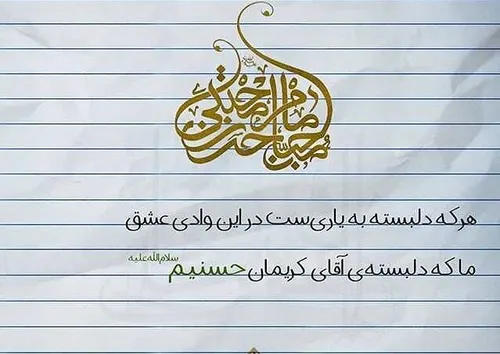 هرکه دلبسته به یاری‌ست در این وادی عشق
ما که دلبسته‌ی آقای کریمان حسنیم سلام‌الله‌علیه